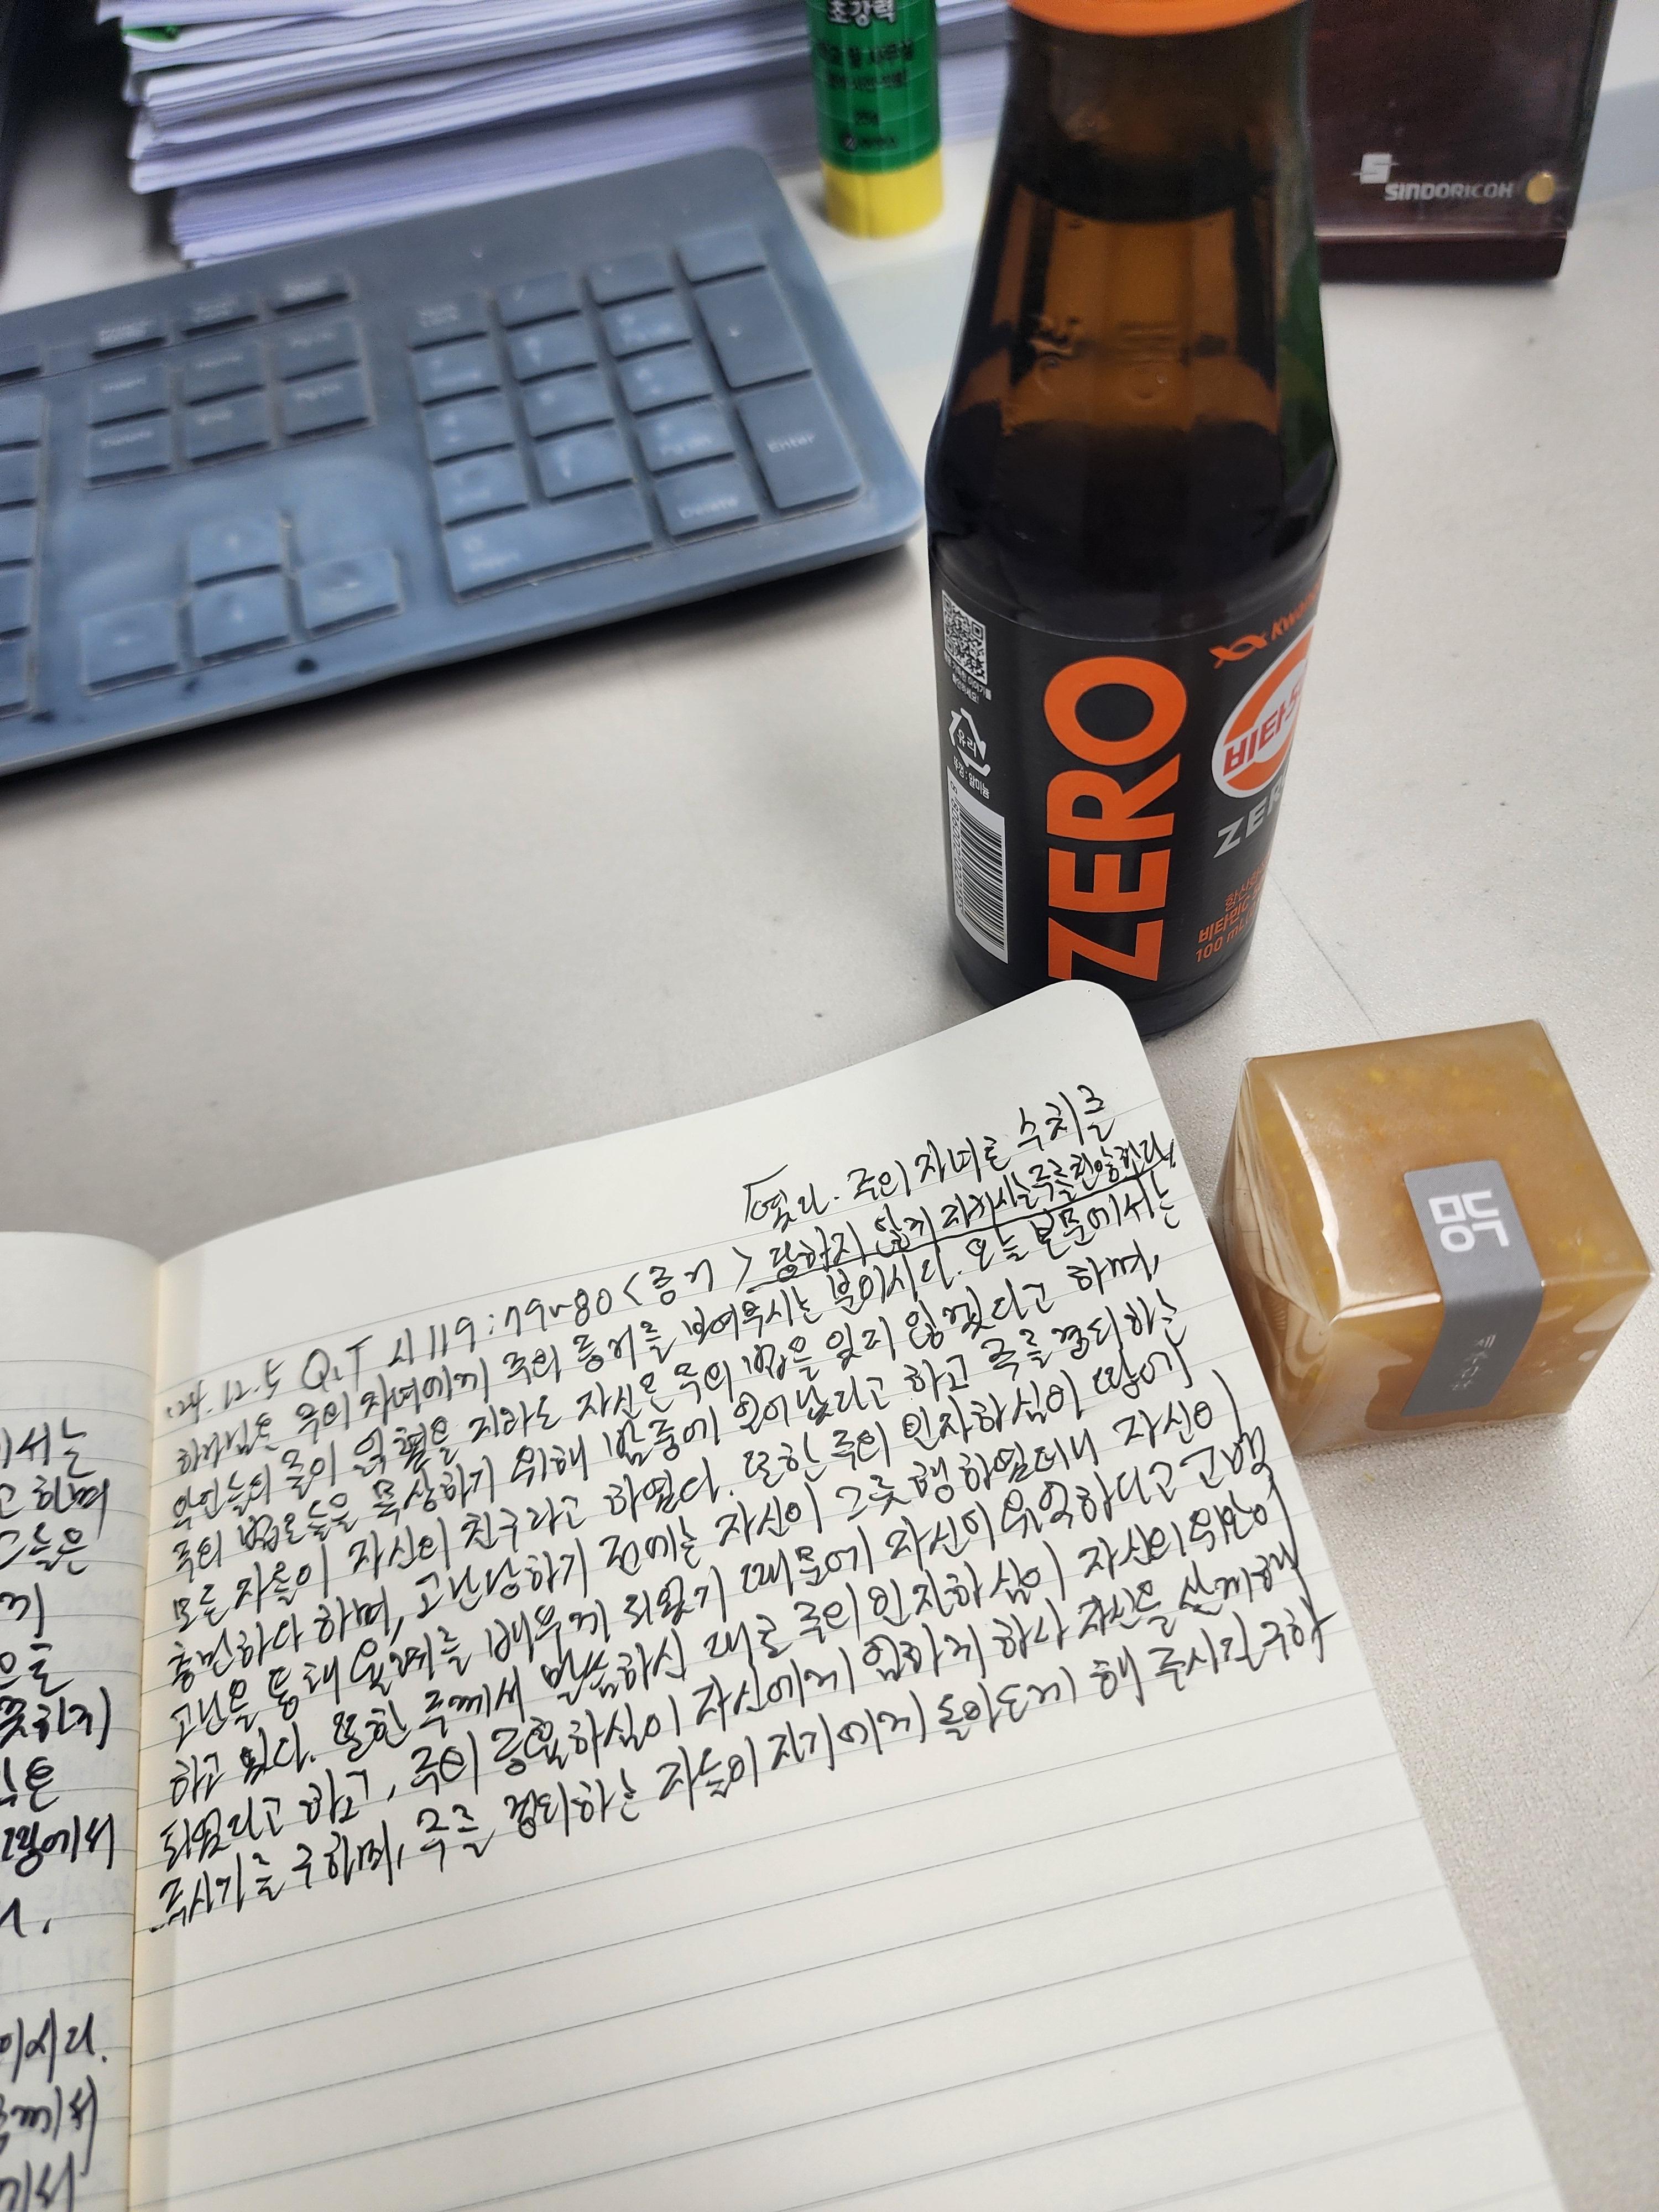 초강력
SINDORICOH
Enter
Delete
유리
ZERO
비타
ZER
비타민C
100 mL
몽
였다. 주의 자녀로 수치를
당하지 않게 지키시는 주를 찬양한다.
'24.12.5 Q.T 시119:79~80 <증거>
하나님은 주의 자녀에게 주의 증거를 보여주시는 분이시다. 오늘 본문에서는
악인들의 줄이 읽혔을 지라도 자신은 주의 법을 잊지 않겠다고 하며,
주의 법도들을 묵상하기 위해 밤중에 일어났다고 하고 주를 경외하는
모든 자들이 자신의 친구라고 하였다. 또한 주의 인자하심이 땅에
충만하다 하며, 고난당하기 전에는 자신이 그릇 행하였더니 자신이
고난을 통해 율례를 배우게 되었기 때문에 자신이 유익하다고 고백
하고 있다. 또한 주께서 말씀하신 대로 주의 인자하심이 자신의 위안이
되었다고 하고, 주의 긍휼하심이 자신에게 임하게 하사 자신을 살게해
주시기를 구하며, 주를 경외하는 자들이 자기에게 돌아오게 해 주시길 구하
서는
고 하며
그들은
못하게
에서
이시다.